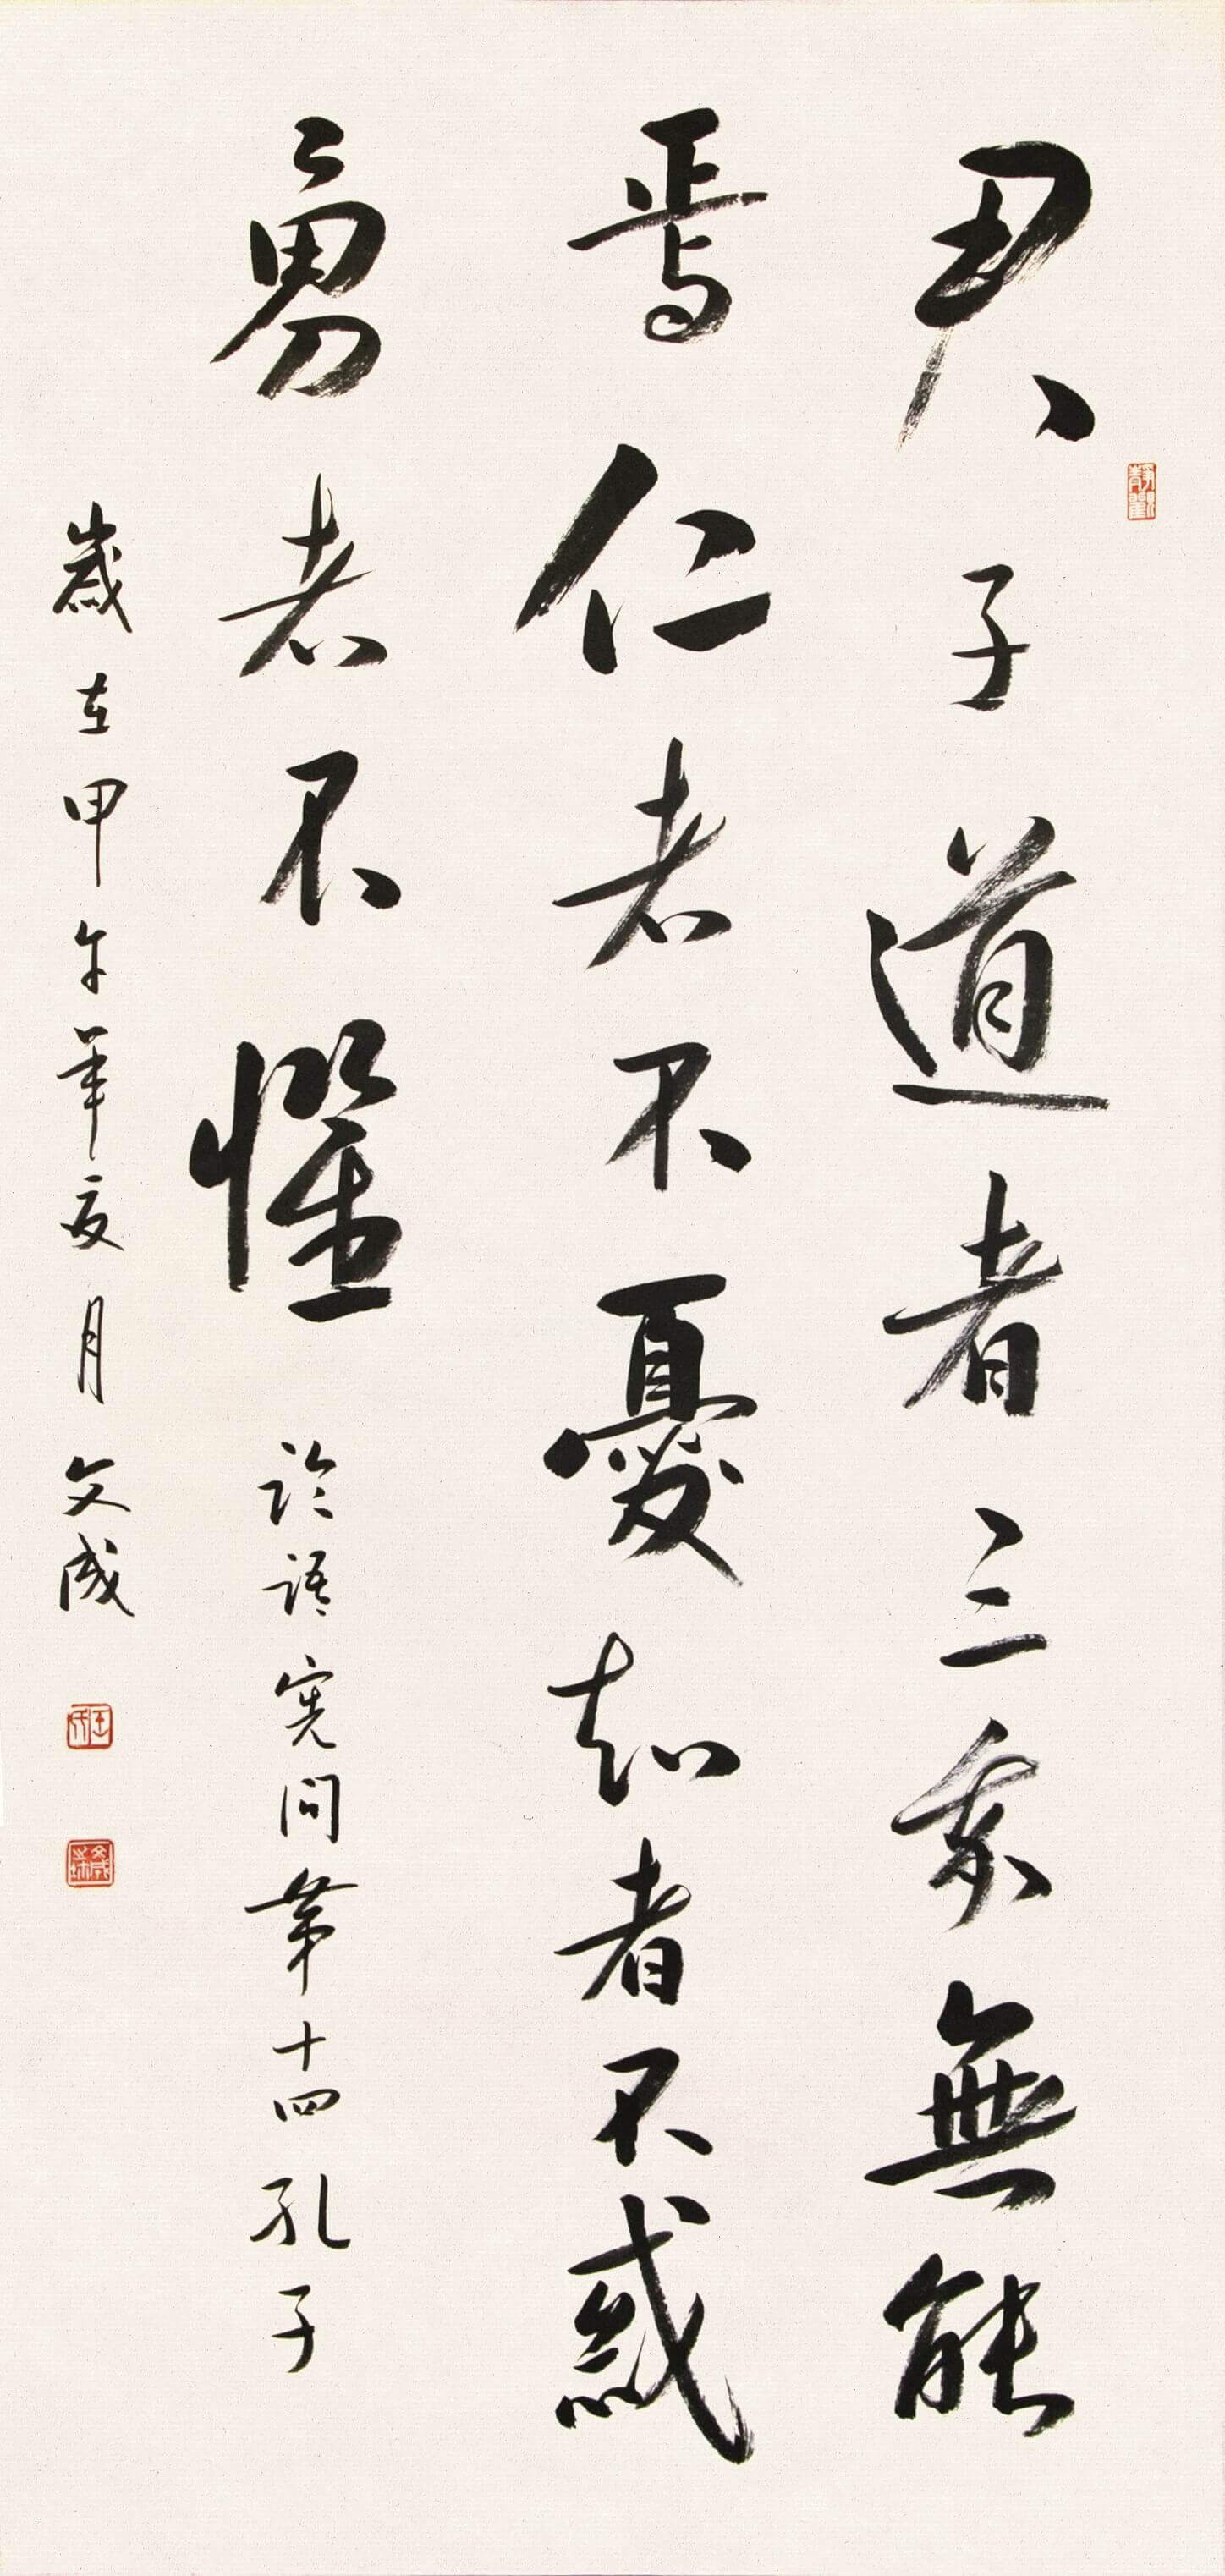 君子道者三我無能
靜觀
焉仁者不憂知者不惑
勇者不懼 論語憲問第十四孔子
歲在甲午年夏月 文成
王氏